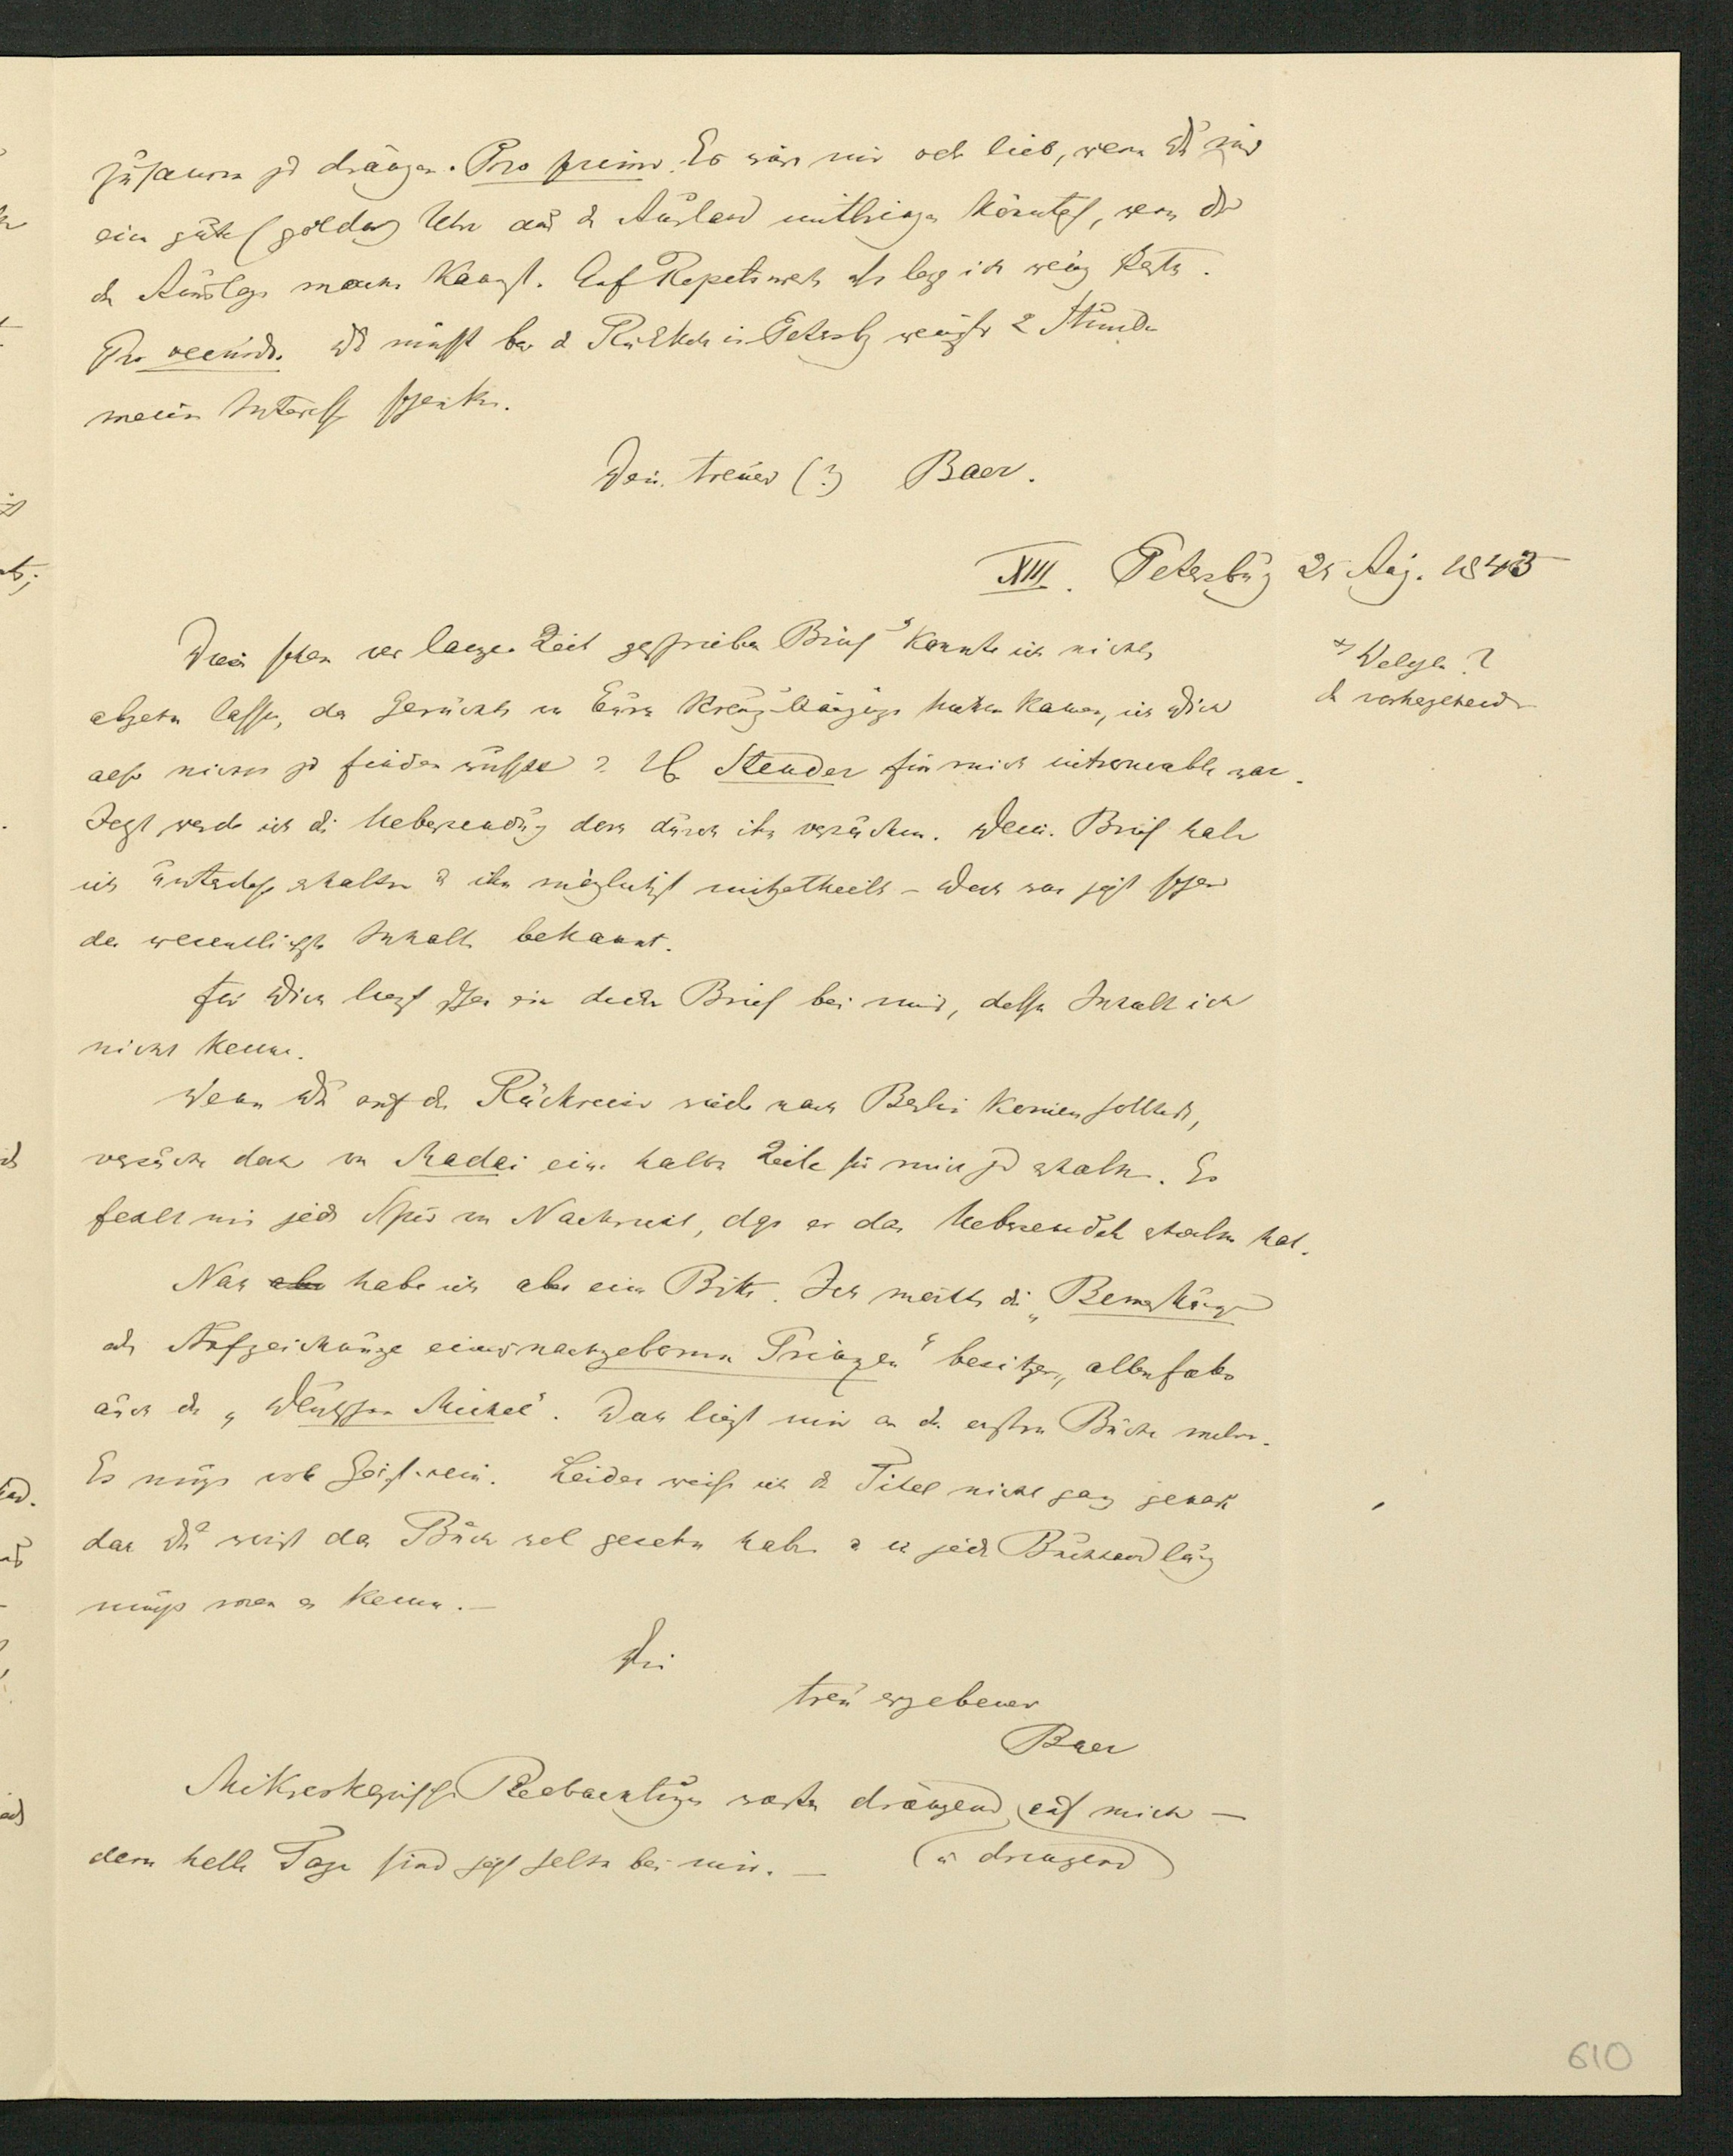 zusammen zu drängen. Pro primo. Es wäre mir sehr lieb, wenn Du mir
ein gute (goldne) Uhr aus d Ausland mitbringen könntest, wenn Du
die Auslage machen kannst. Auf Repetirwerk lege ich wenig
Pro secundo. Du musst bei d Rückkehr in Petersbg wenigst 2 Stunden
meinem Interesse schenken.
Dein treuer (?) Baer.
XIII. Petersburg 25 Aug. 1843
Diesen schon vor langer Zeit geschriebenen Brief *) konnte ich nicht
*) Welchen?
den vorhergehenden
abgehn lassen, da Gerüchte von Euren Kreuz- Zügen kamen, ich Dich
also nicht zu finden wusste u. Stender für mich introuvable war.
Jetzt werde ich die Uebersendung durch ihn versuchen. Deinen Brief habe
ich unterdess erhalten u ihn möglichst mitgetheilt – doch war jetzt schon
der wesentlichste Inhalt bekannt.
Für Dich liegt hier ein dicker Brief bei mir, dessen Inhalt ich
nicht kenne.
Wenn Du auf der Rückreise wieder nach Berlin kommen solltest,
versuche doch von Madai eine halbe Zeile für mich zu erhalten. Es
fehlt mir jede Spur von Nachricht, dass er das Uebersendete erhalten hat.
Noch aber habe ich aber eine Bitte. Ich möchte die „Bemerkungen
oder Aufzeichnungen eines nachgebornen Prinzen“ besitzen, allenfalls
auch den „Deutschen Michel“. Doch liegt mir an dem ersten Buche mehr.
Es muss viel Geist sein. Leider weiss ich d Titel nicht ganz genau
doch Du wirst das Buch wol gesehen haben u in jeder Buchhandlung
muss man es kennen. –
Dein
treu ergebener
Baer
Mikroskopische Beobachtungen warten drängend auf mich –
(u dringend)
denn helle Tage sind jetzt selten bei mir. –
610